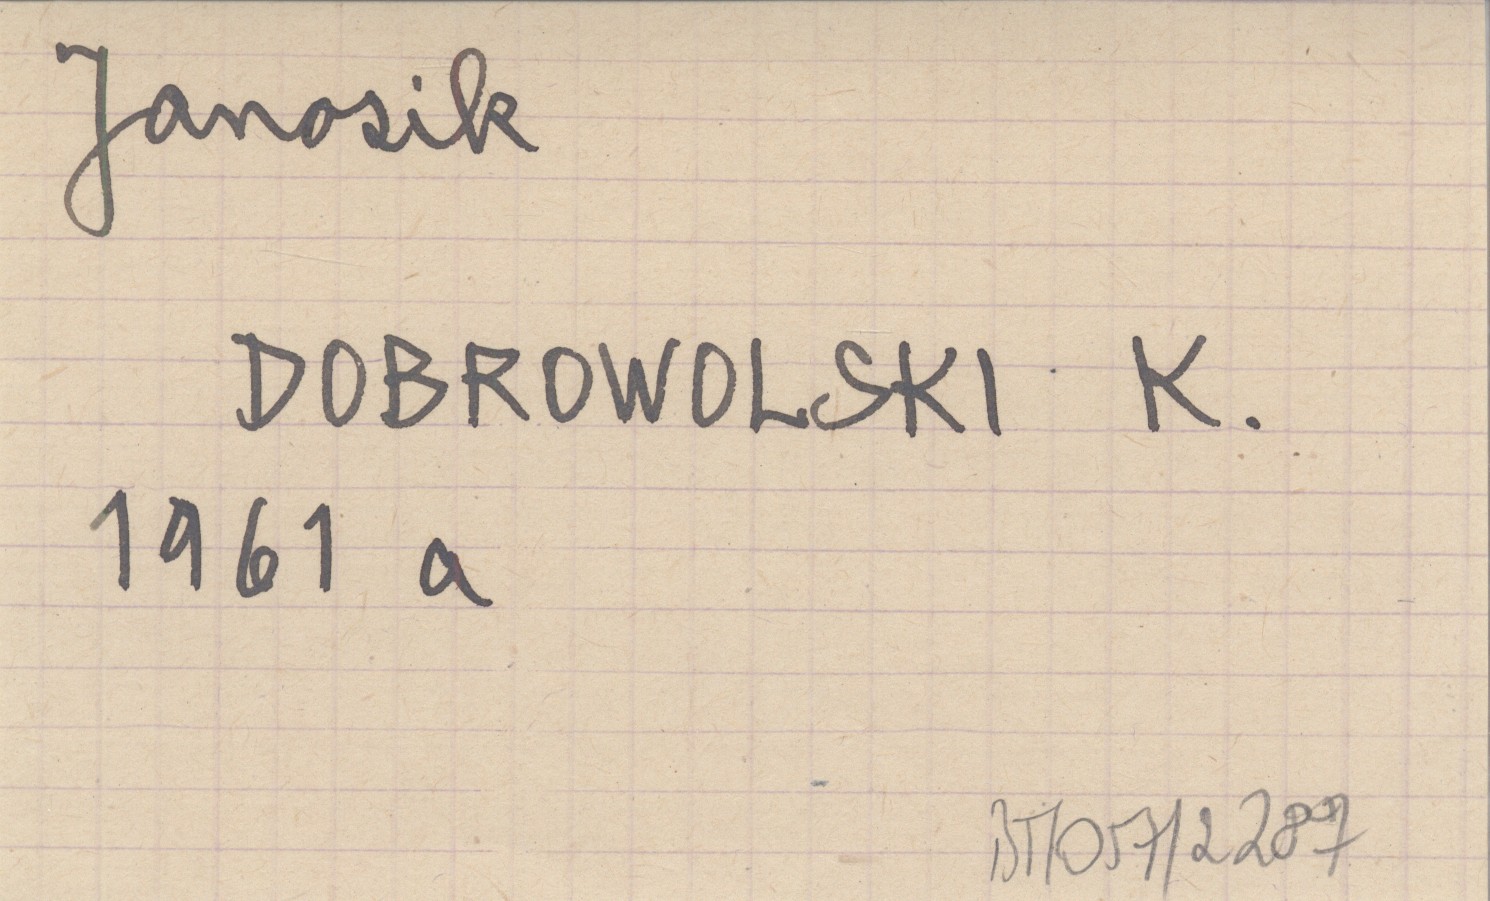 Janosik
DOBROWOLSKI K.
1961 a
BT/057/2287